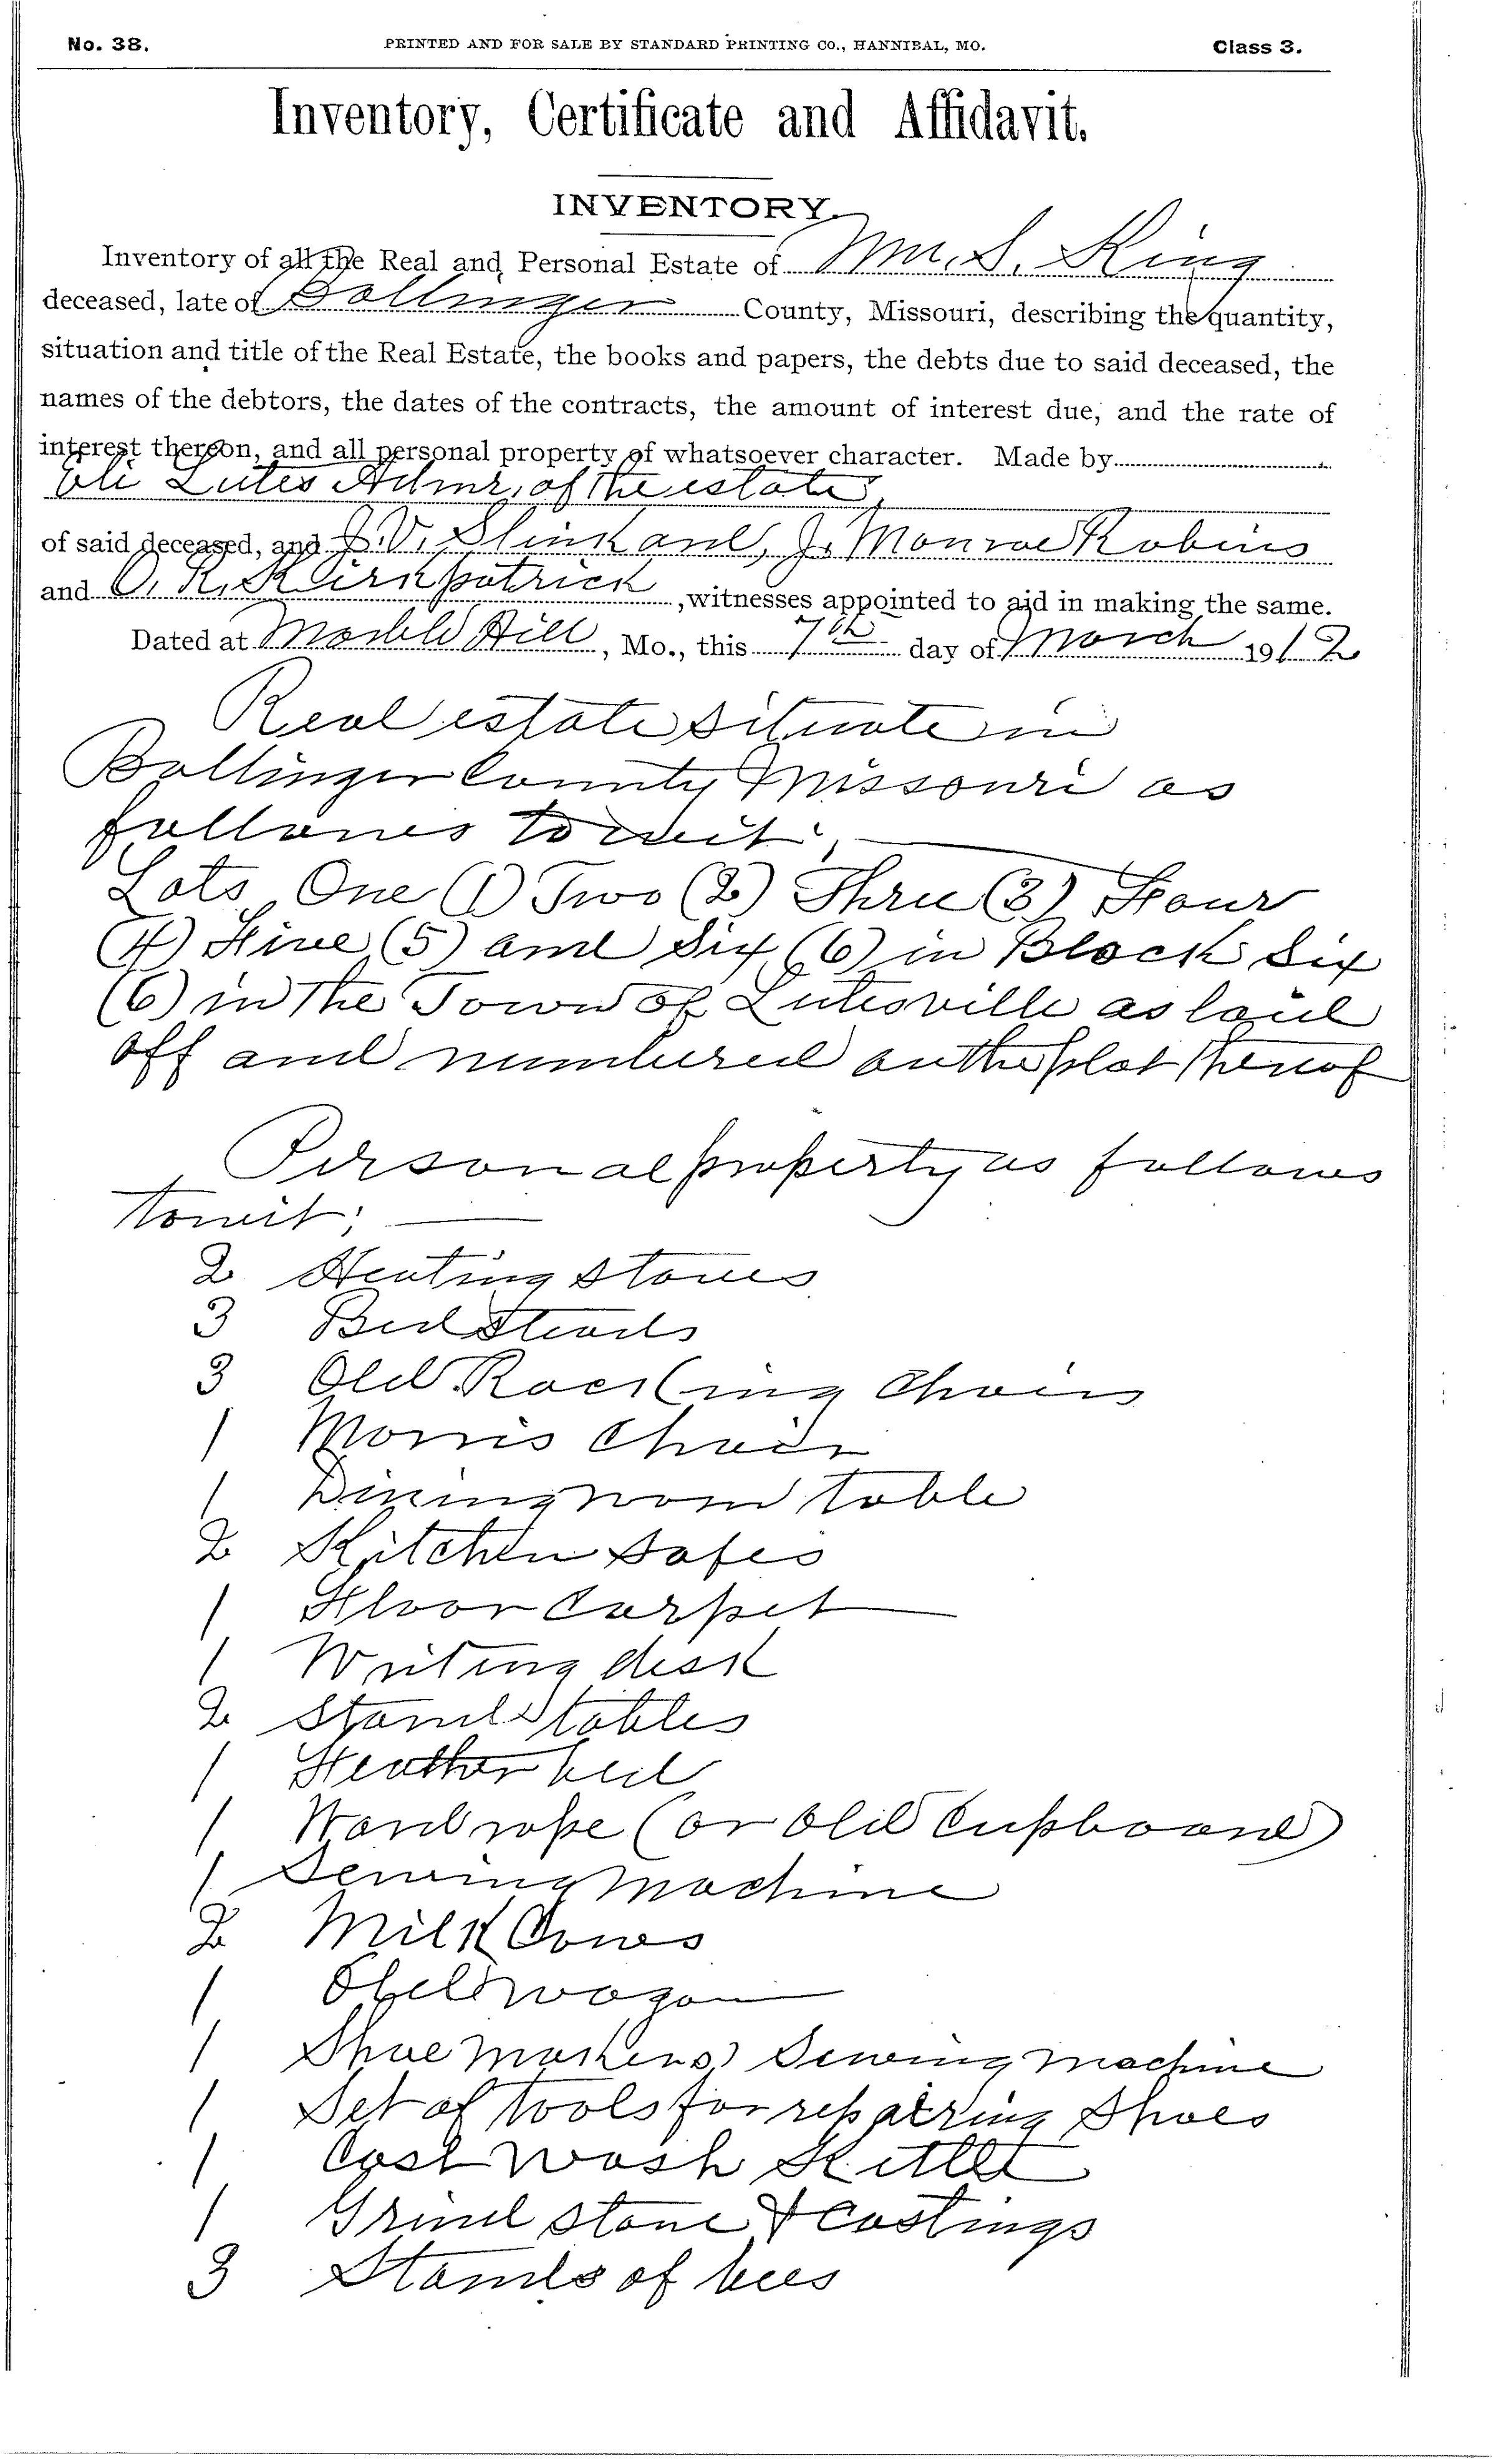 No. 38. PRINTED AND FOR SALE BY STANDARD PRINTING CO., HANNIBAL, MO. Class 3.
Inventory, Certificate and Affidavit.
INVENTORY.
Inventory of all the Real and Personal Estate of Wm. S. King
deceased, late of Bollinger County, Missouri, describing the quantity,
situation and title of the Real Estate, the books and papers, the debts due to said deceased, the
names of the debtors, the dates of the contracts, the amount of interest due, and the rate of
interest thereon, and all personal property of whatsoever character. Made by
Eli Lutes Admr, of the estate
of said deceased, and J. V. Slinkard, J. Monroe Robins
and O. R. Kirkpatrick, witnesses appointed to aid in making the same.
Dated at Marble Hill, Mo., this 7th day of March 1912
Real estate situate in
Bollinger County Missouri as
follows to wit;
Lots One (1) Two (2) Three (3) Four
(4) Five (5) and Six (6) in Block Six
(6) in the Town of Lutesville as laid
off and numbered on the plat thereof
Personal property as follows
towit;
2 Heating Stoves
3 Bed Steads
3 Old Rocking Chairs
1 Morris Chair
1 Dining room table
2 Kitchen Safes
1 Floor Carpet
1 Writing desk
2 Stand tables
1 Feather bed
1 Wardrope (or Old Cupboard)
1 Sewing Machine
2 Milk Cows
1 Old wagon
1 Shoe Makers Sewing Machine
1 Set of tools for repairing Shoes
1 Cast Wash Kittle
1 Grind Stone & Castings
3 Stands of bees